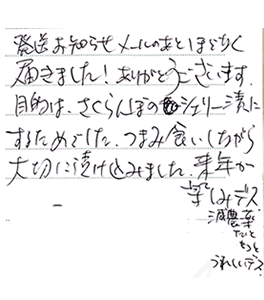 発送お知らせメールのあとほどなく
届きました！ありがとうございます．
目的は、さくらんぼのシェリー漬に
するためでした．つまみ食いしながら
大切に漬け込みました．来年が
楽しみデス
減農薬
だと
もっと
うれしいデス．